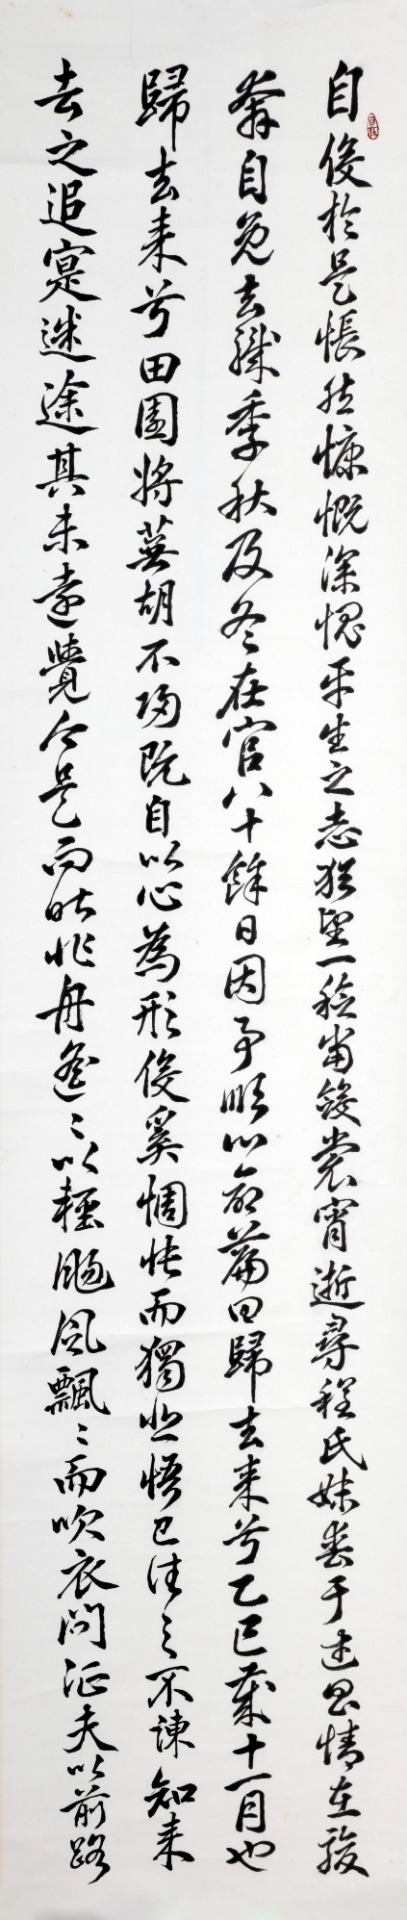 自役於是悵然慷慨深愧平生之志猶望一稔當斂裳宵逝尋程氏妹喪于武昌情在駿
奔自免去職季秋及冬在官八十餘日因事順心命篇曰歸去來兮乙巳歲十一月也
歸去來兮田園將蕪胡不歸既自以心為形役奚惆悵而獨悲悟已往之不諫知來
者之追寔迷途其未遠覺今是而昨非舟遙〻以輕颺風飄〻而吹衣問征夫以前路